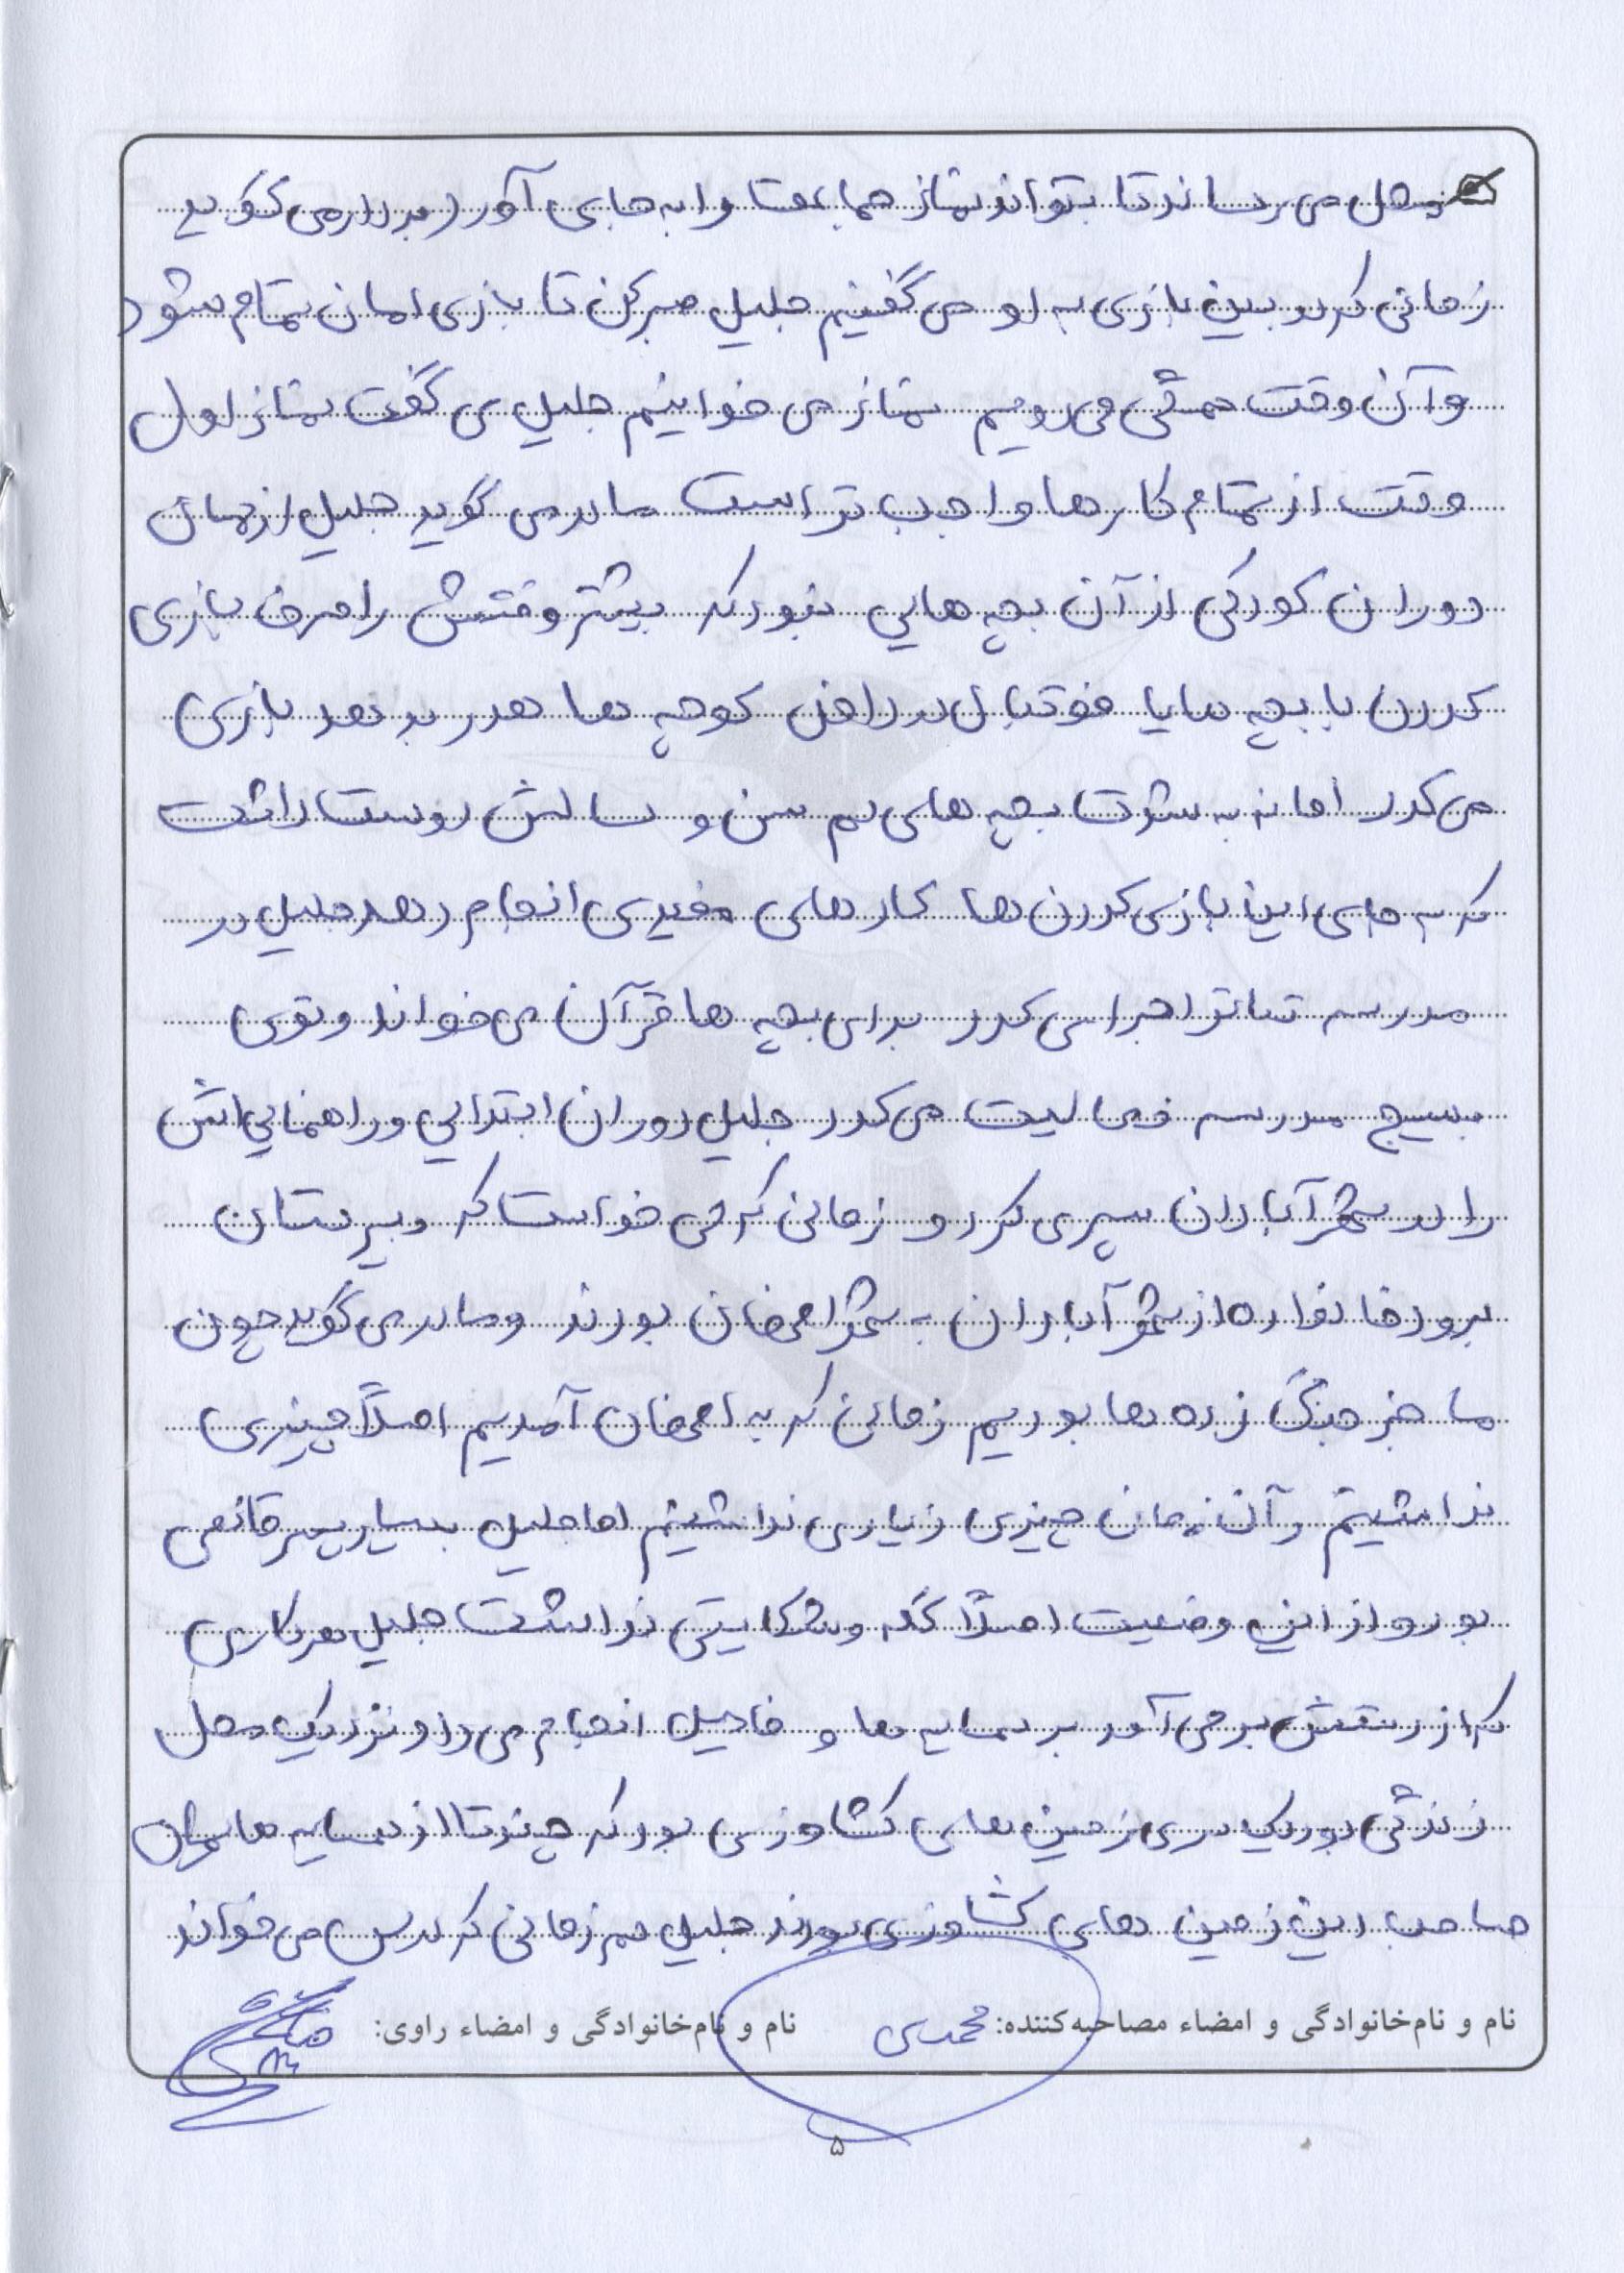 محل می رساند تا بتواند نماز جماعت را به جای آورد برادر می گوید
زمانی که در بین بازی به او می گفتیم جلیل صبر کن تا بازی امان تمام شود
و آن وقت همگی می رویم نماز می خوانیم جلیل می گفت نماز اول
وقت از تمام کارها واجب تر است مادر می گوید جلیل از همان
دوران کودکی از آن بچه هایی نبود که بیشتر وقتش را صرف بازی
کردن با بچه ها یا فوتبال در داخل کوچه ها هدر بدهد بازی
می کرد اما نه به شدت بچه های هم سن و سالش دوست داشت
که به جای این بازی کردن ها کارهای مفیدی انجام دهد جلیل در
مدرسه تئاتر اجرا می کرد برای بچه ها قرآن می خواند و توی
بسیج مدرسه فعالیت می کرد جلیل دوران ابتدایی و راهنمایی اش
را در شهر آبادان سپری کرد و زمانی که می خواست که دبیرستان
برود خانواده از شهر آبادان به شهر اصفهان بودند و مادر می گوید چون
ما جز جنگ زده ها بودیم زمانی که به اصفهان آمدیم اصلاً چیزی
نداشتیم و آن زمان چیزی زیادی نداشتیم اما جلیل بسیار پسر قانعی
بود و از این وضعیت اصلاً گله و شکایتی نداشت جلیل هر کاری
که از دستش بر می آمد بر همسایه ها و فامیل انجام می داد و نزدیک محل
زندگی بود یک سری زمین های کشاورزی بود که چند تا از همسایه هایمان
صاحب این زمین های کشاورزی بودند جلیل هم زمانی که درس می خواند
نام و نام‌خانوادگی و امضاء مصاحبه‌کننده: محمدی نام و نام‌خانوادگی و امضاء راوی:
۵